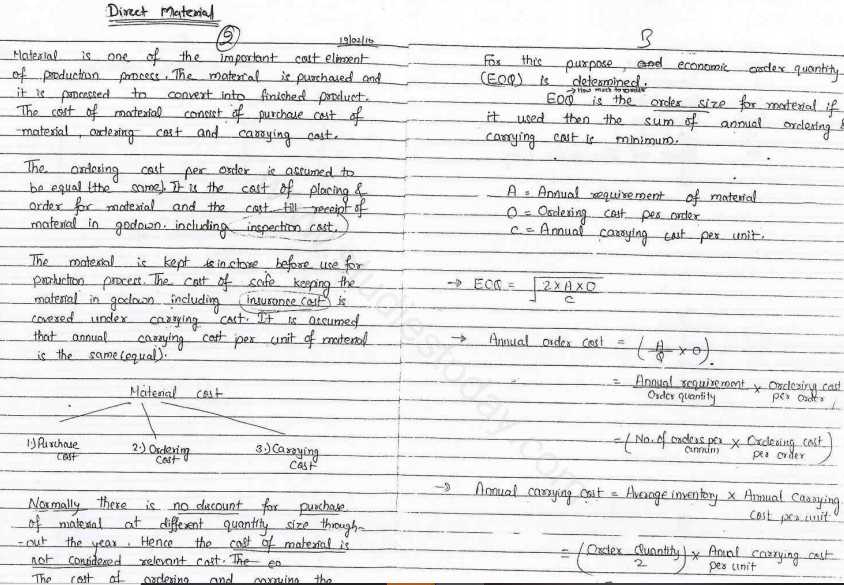 Direct Material
5
19/02/10
Material is one of the important cost eliment
of production process. The material is purchased and
it is processed to convert into finished product.
The cost of material consist of purchase cost of
material, ordering cost and carrying cost.
The ordering cost per order is assumed to
be equal (the same). It is the cost of placing &
order for material and the cost till receipt of
material in godown. including inspection cost.
The material is kept in store before use for
production process. The cost of safe keeping the
material in godown including (insurance cost) is
covered under carrying cost. It is assumed
that annual carrying cost per unit of material
is the same (equal).
Material cost
1.) Purchase cost
2.) Ordering cost
3.) Carrying cost
Normally there is no discount for purchase
of material at different quantity size through-
-out the year. Hence the cost of material is
not considered relevant cost. The
The cost of ordering and carrying the
3
For this purpose, economic order quantity
(EOQ) is determined.
→ How much to order
EOQ is the order size for material if
it used then the sum of annual ordering &
carrying cost is minimum.
A = Annual requirement of material
O = Ordering cost per order
C = Annual carrying cost per unit.
→ EOQ = √ 2 × A × O / C
→ Annual order cost = (A/Q × O).
= Annual requirement / Order quantity × Ordering cost per order
= (No. of orders per annum × Ordering cost per order)
→ Annual carrying cost = Average inventory × Annual Carrying cost per unit
= (Order Quantity / 2) × Anual carrying cost per unit
studiestoday.com